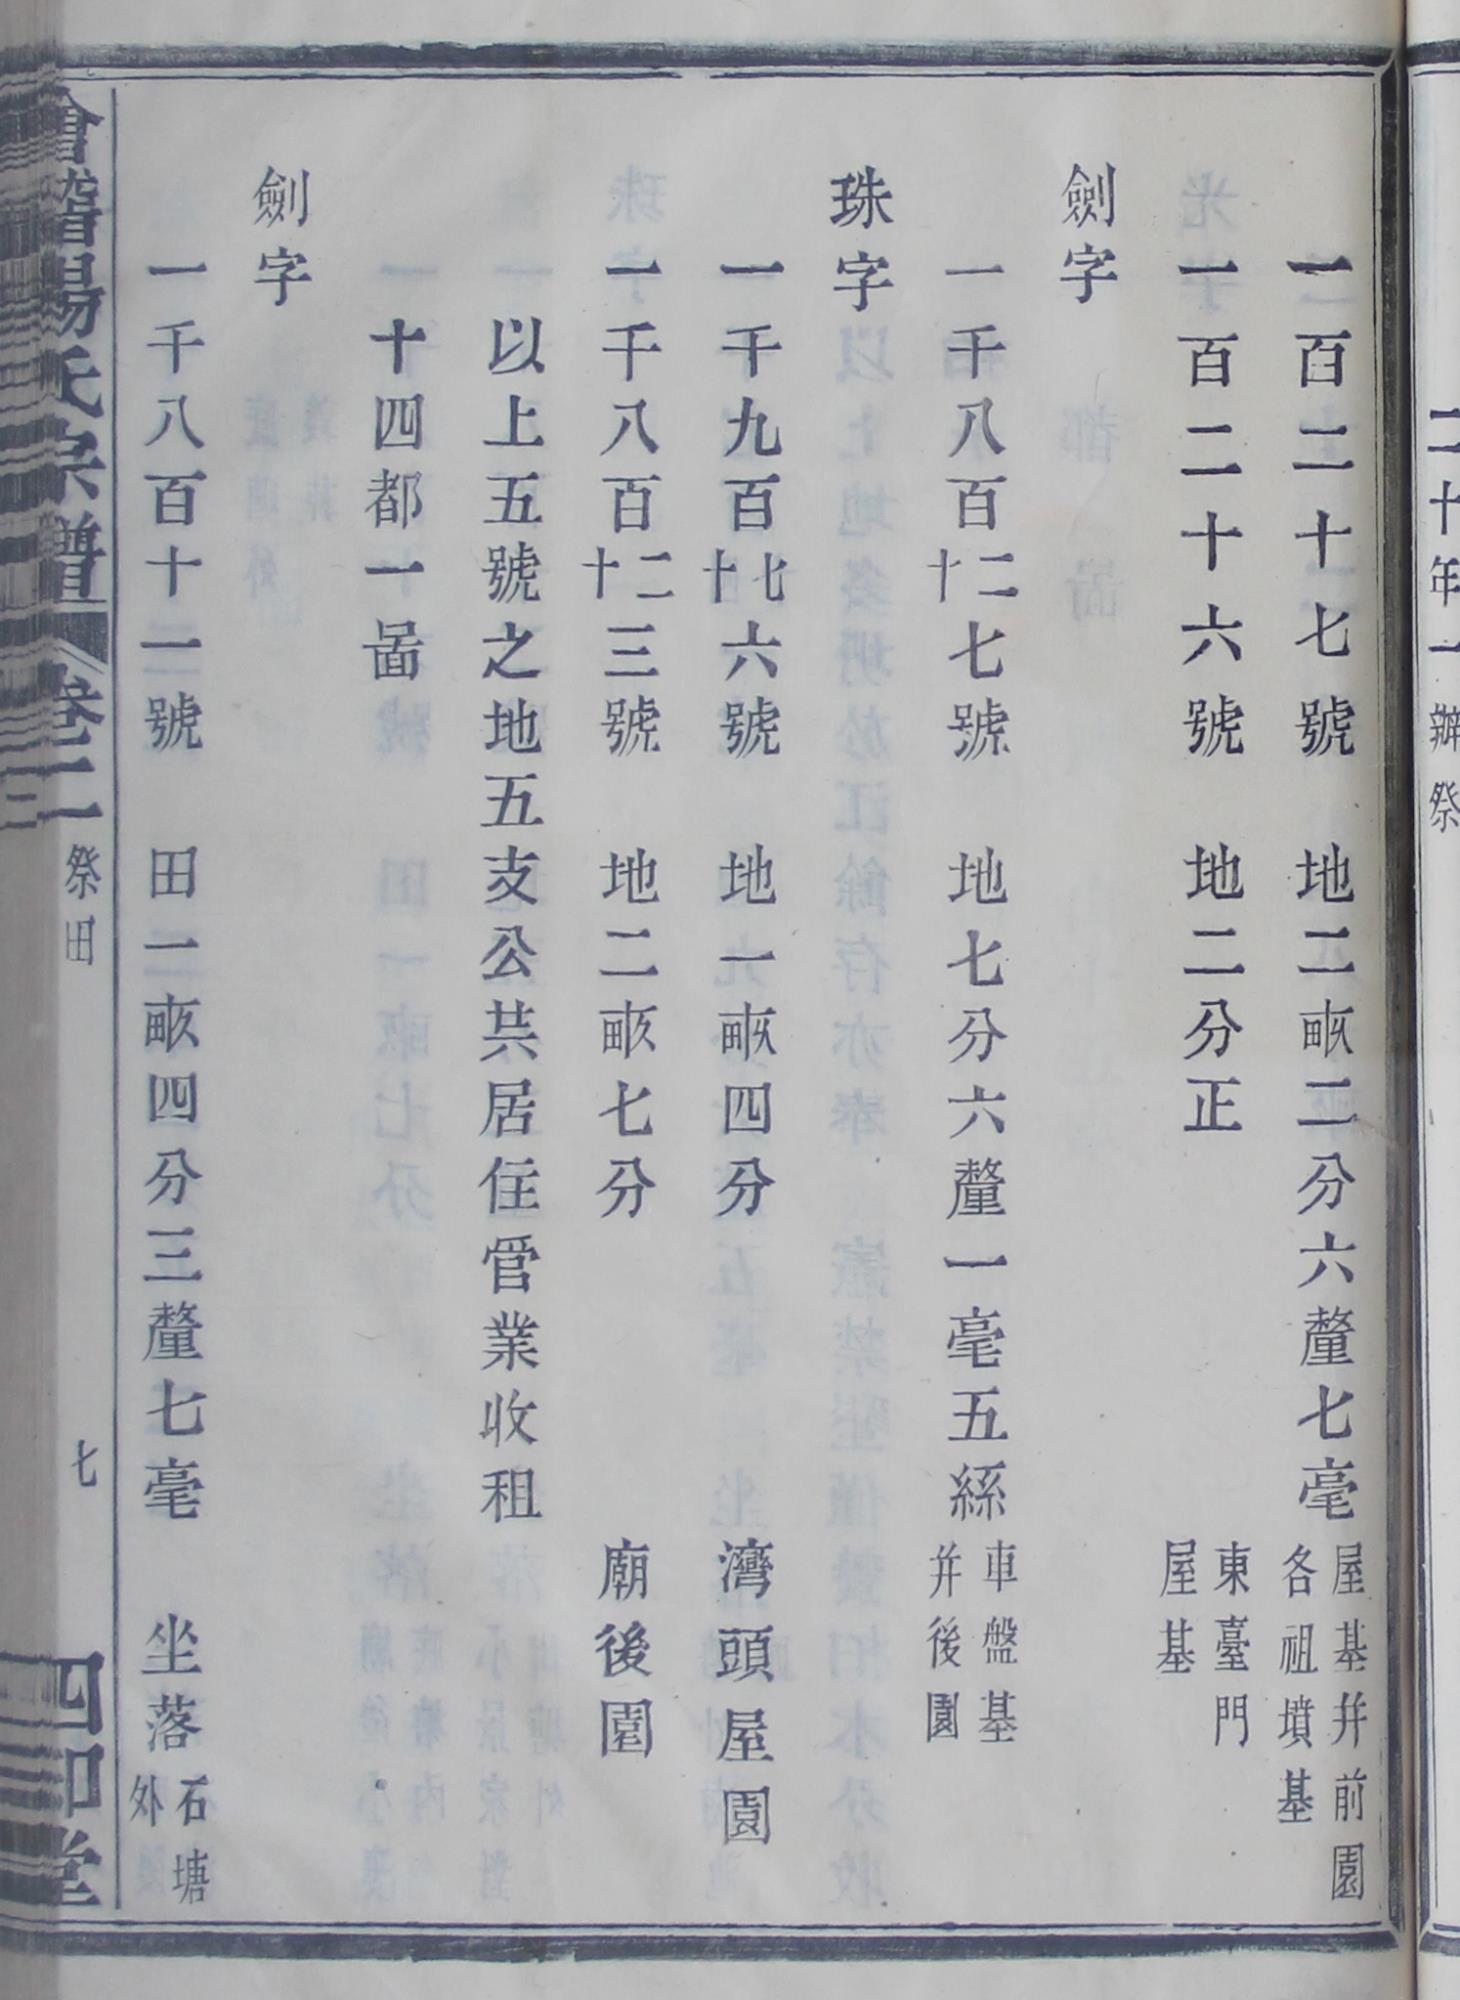 二十年一辦祭
一百二十七號 地二畝二分六釐七毫 屋基并前園各祖墳基
一百二十六號 地二分正 東臺門屋基
劍字
一千八百二十七號 地七分六釐一毫五絲 車盤基并後園
珠字
一千九百七十六號 地一畝四分 灣頭屋園
一千八百二十三號 地二畝七分 廟後園
以上五號之地五支公共居住管業收租
十四都一啚
劍字
一千八百十一號 田一畝四分三釐七毫 坐落石塘外
會稽楊氏宗譜 卷二 祭田 七 四知堂